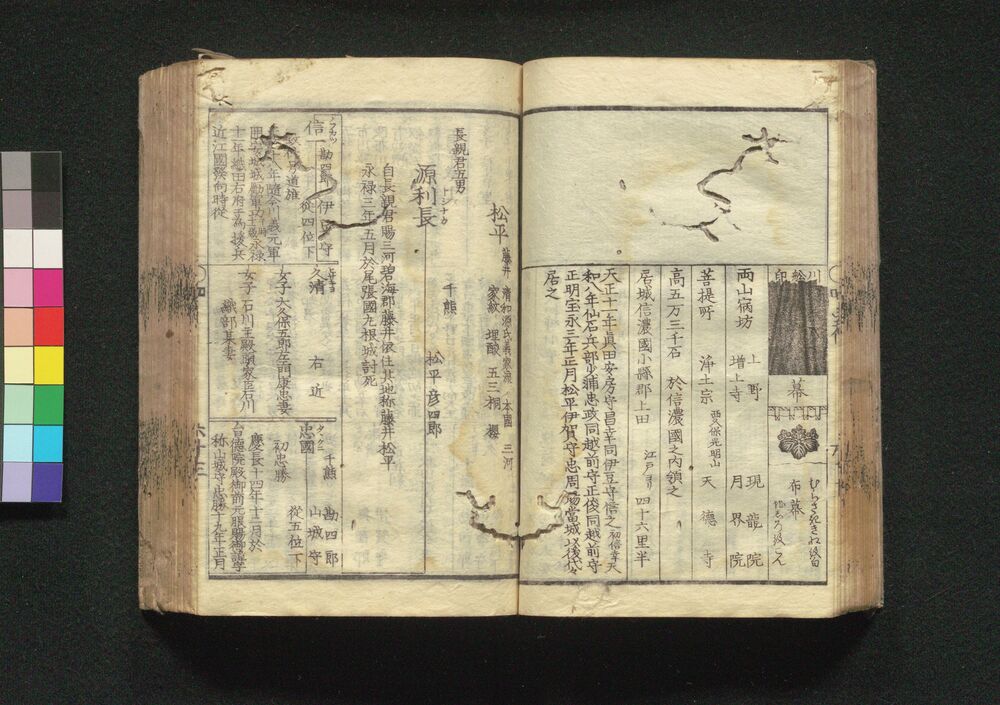 幕
布幕
両山宿坊
上野 現龍院
増上寺 月界院
菩提所 浄土宗 西久保光明山 天德寺
高五万三千石 於信濃國之内領之
居城信濃國小縣郡上田 江戸ヨリ 四十六里半
天正十一年眞田安房守昌幸同伊豆守信之
和八年仙石兵部少輔忠政同越前守正俊同越前守
正明宝永三年正月松平伊賀守忠周賜當城以後代々
居之
松平 藤井 清和源氏義家流 本國 三河
家紋 五三桐 櫻
長親君五男
千熊 松平彦四郎
トシナガ
源利長
自長親君賜三河碧海郡藤井依住其地称藤井松平
永禄三年五月於尾張國九根城討死
信一 勘四郎 伊豆守
從四位下
道雄
年随今川義元軍
十年織田右府
近江國發向時從
久清 右近
女子 大久保五郎左衛門康忠妻
女子 石川主殿頭家臣石川
織部某妻
タヾクニ
忠國 千熊 勘四郎
山城守
從五位下
初忠勝
慶長十四年十二月於
台德院殿御前元服賜御諱字
称山城守忠勝十九年正月